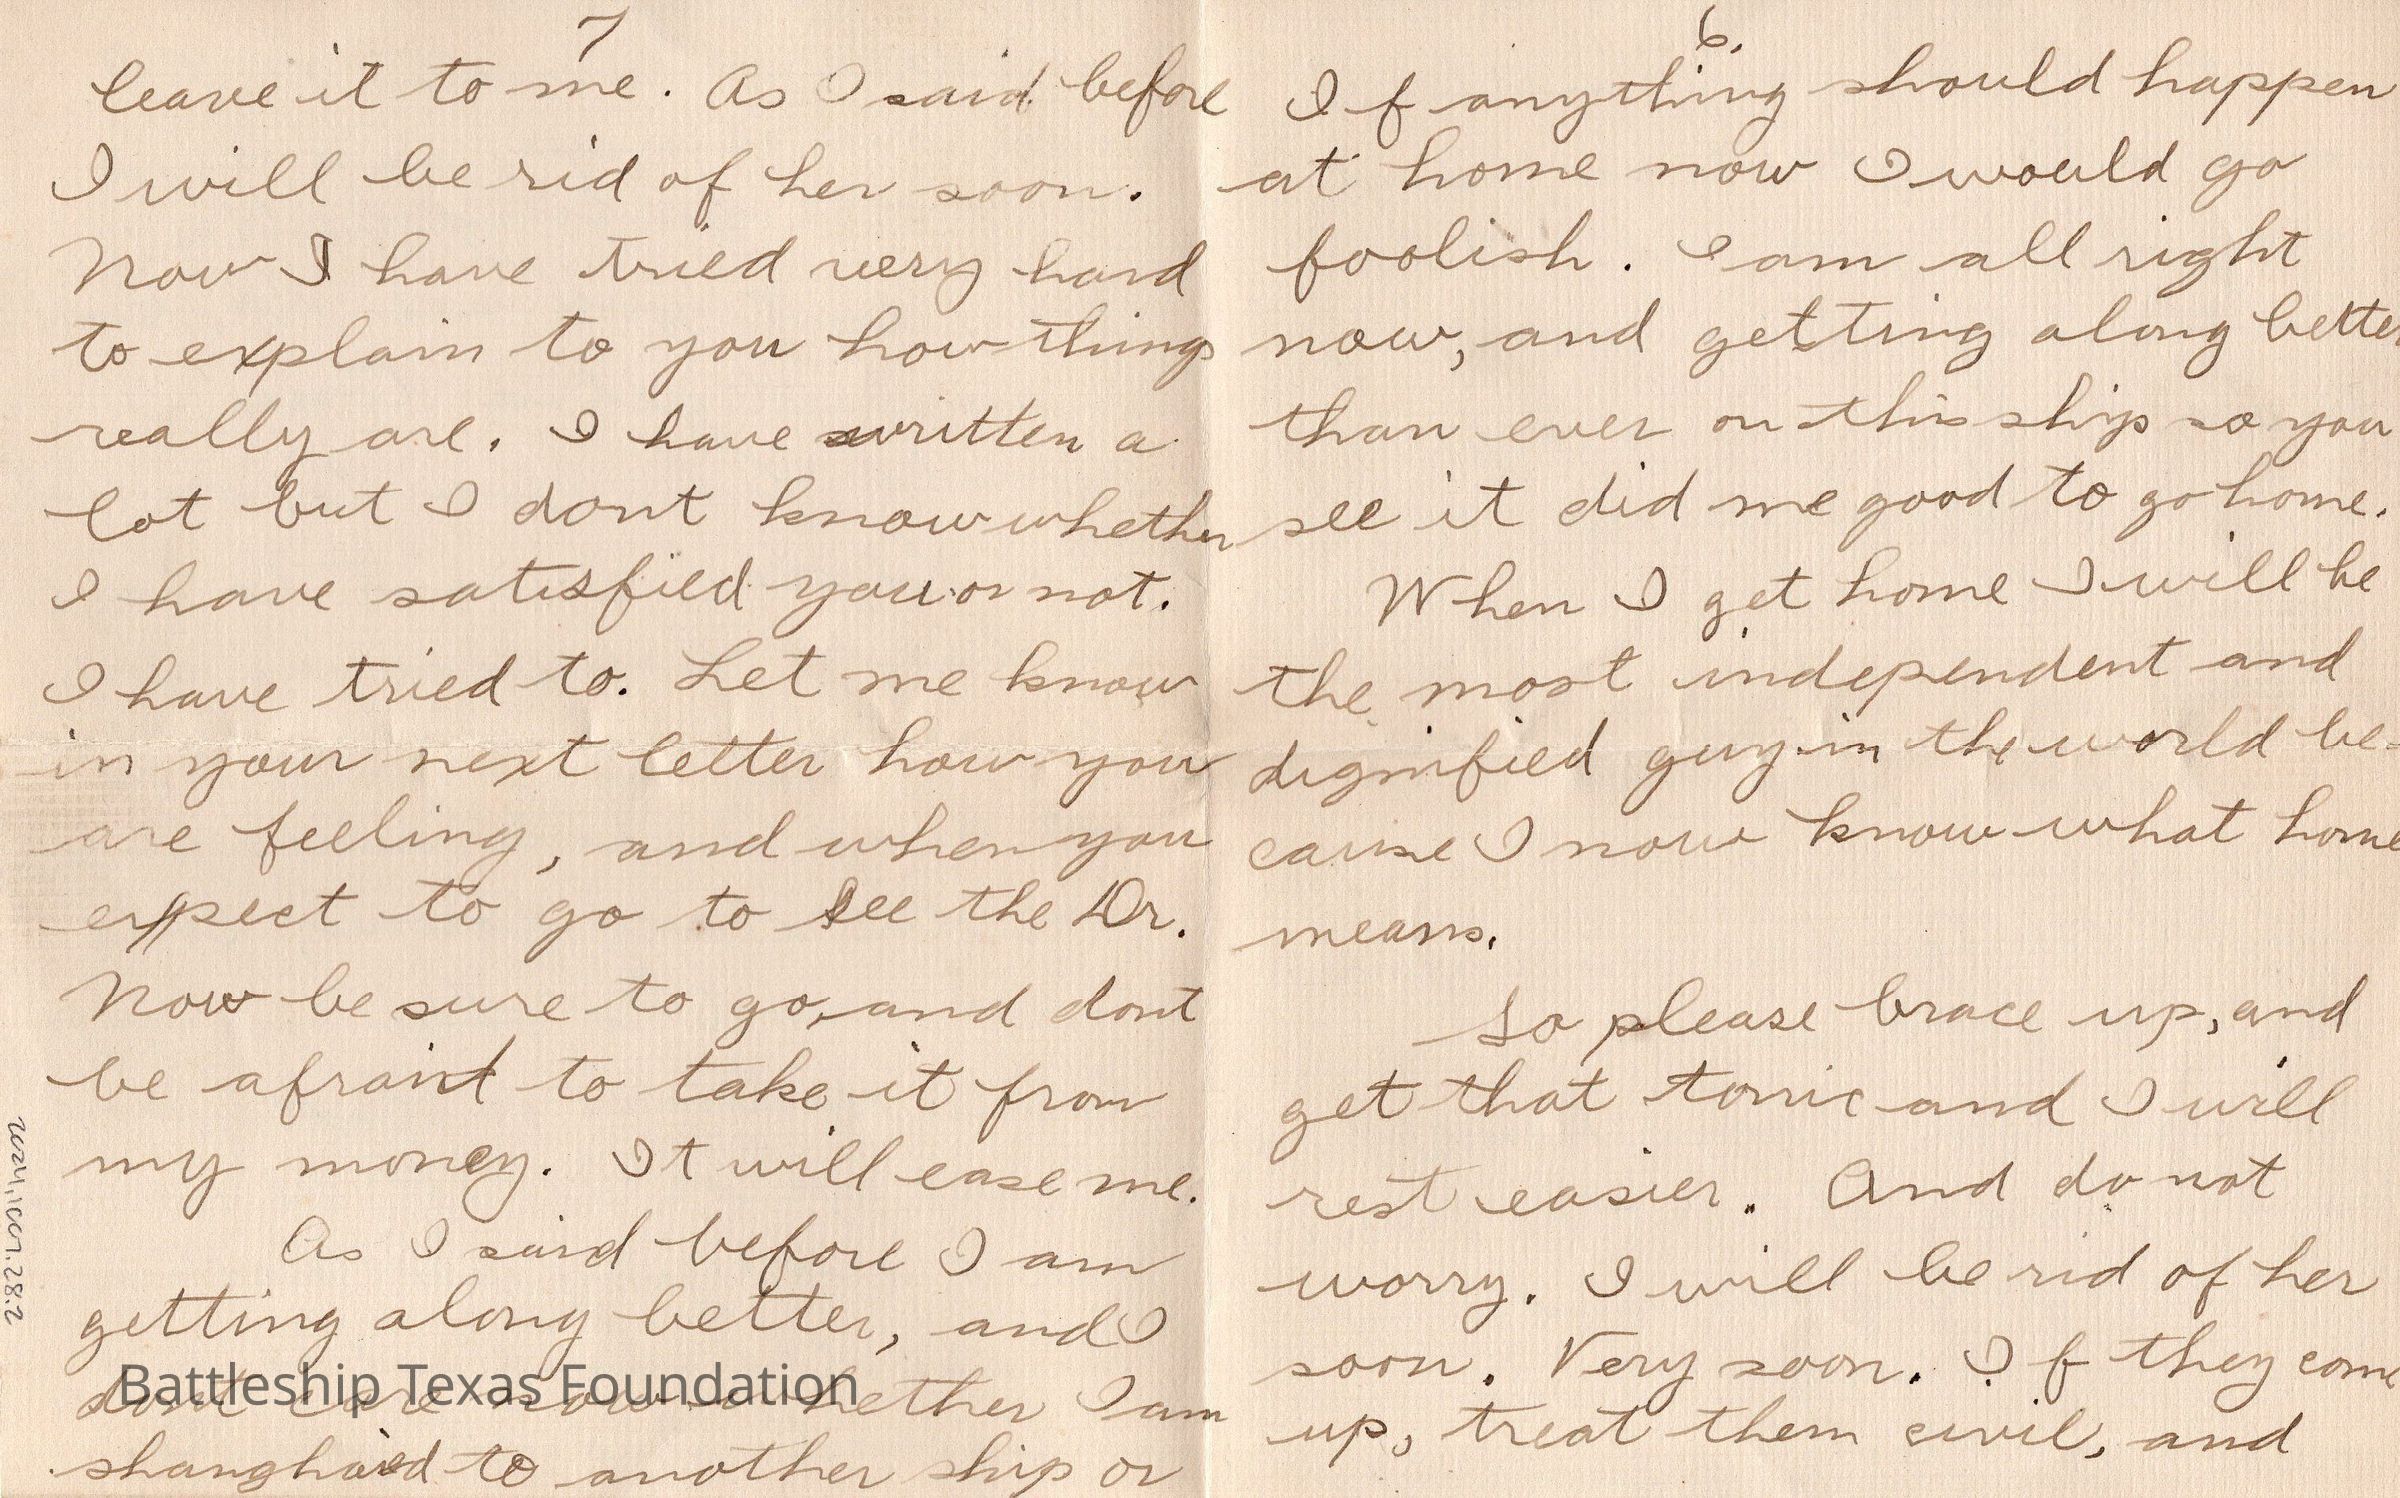 6.
If anything should happen
at home now I would go
foolish. I am all right
now, and getting along better
than ever on this ship so you
see it did me good to go home.
When I get home I will be
the most independent and
dignified guy in the world be-
cause I now know what home
means.
So please brace up, and
get that tonic and I will
rest easier. And do not
worry. I will be rid of her
soon. Very soon. If they come
up, treat them civil, and
7
leave it to me. As I said before
I will be rid of her soon.
Now I have tried very hard
to explain to you how things
really are. I have written a
lot but I dont know whether
I have satisfied you or not.
I have tried to. Let me know
in your next letter how you
are feeling, and when you
expect to go to see the Dr.
Now be sure to go, and dont
be afraid to take it from
my money. It will ease me.
As I said before I am
getting along better, and I
dont care now whether I am
shanghaied to another ship or
Battleship Texas Foundation